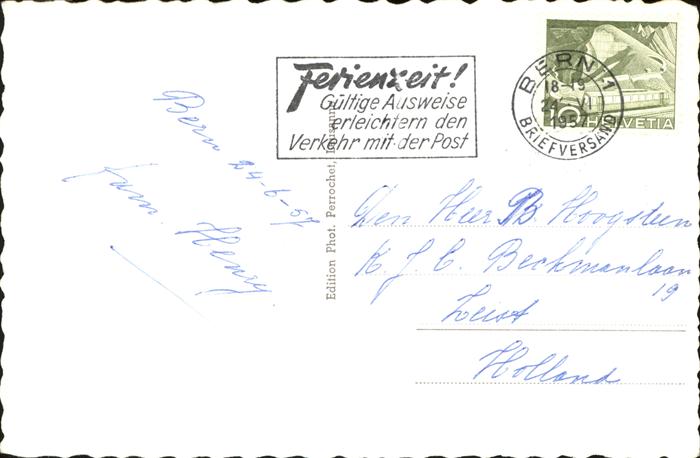 Ferienzeit!
Gültige Ausweise
erleichtern den
Verkehr mit der Post
BERN 1
18-19
24. VI
1957
BRIEFVERSAND
HELVETIA
Bern 24-6-57
Fam. Henry
Edition Phot. Perrochet, Lausanne
Den Heer B Hoogsteen
K. J. C. Beckmanlaan
19
Zeist
Holland